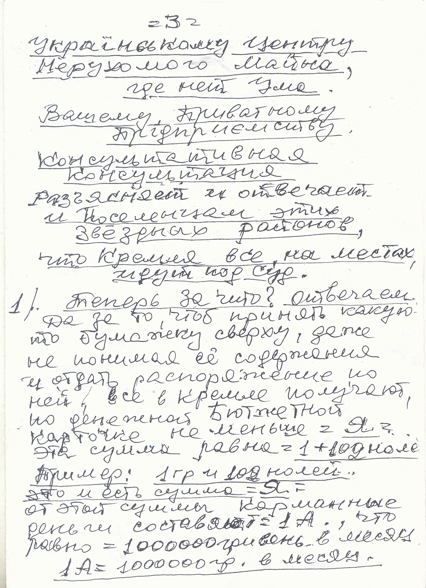 = 3 =
Українському Центру
Нерухомого Майна,
где нет Ума.
Вашему, Приватному
Підприємству.
Консультативная
Консультация
разъясняет и отвечает
и Поселенцам этих
Звёздных районов,
что Кремля все, на местах,
идут под суд.
1). Теперь За что? отвечаем.
Да за то, чтоб принять какую-
то бумажку сверху, даже
не понимая её содержания
и отдать распоряжение по
ней, все в Кремле получают,
по денежной Бютжетной
карточке не меньше = Я =.
Эта сумма равна = 1 + 100 ноле
Пример: 1 гр и 100 нолей.
это и есть сумма = Я =
от этой суммы карманные
деньги составляют = 1А., что
равно = 1000000 гривень в месяц
1А = 1000000 гр. в месяц.